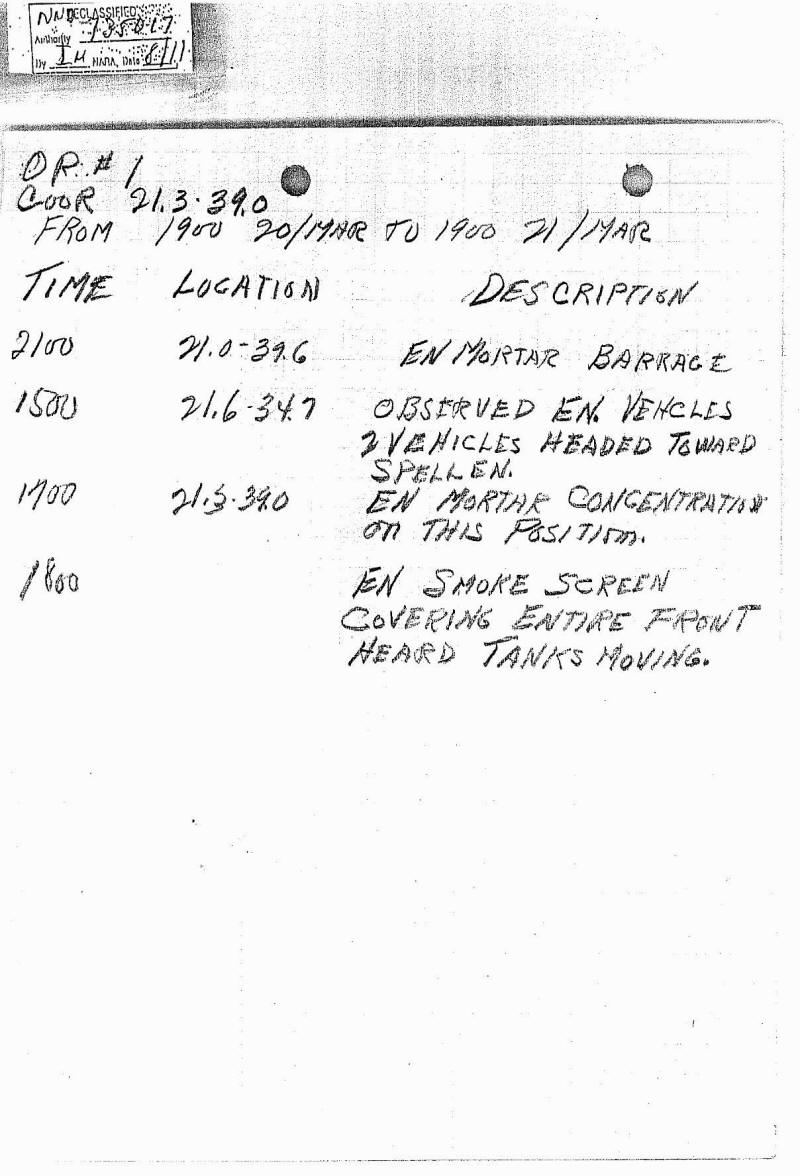 DECLASSIFIED
Authority NND 735017
By IH NARA, Date 8/11
O.P. # 1
COOR 21.3-39.0
FROM 1900 20/MAR TO 1900 21/MAR
TIME LOCATION DESCRIPTION
2100 21.0-39.6 EN MORTAR BARRAGE
1500 21.6-34.7 OBSERVED EN. VEHCLES
2 VEHICLES HEADED TOWARD
SPELLEN.
1700 21.3-39.0 EN MORTAR CONCENTRATION
ON THIS POSITION.
1800 EN SMOKE SCREEN
COVERING ENTIRE FRONT
HEARD TANKS MOVING.